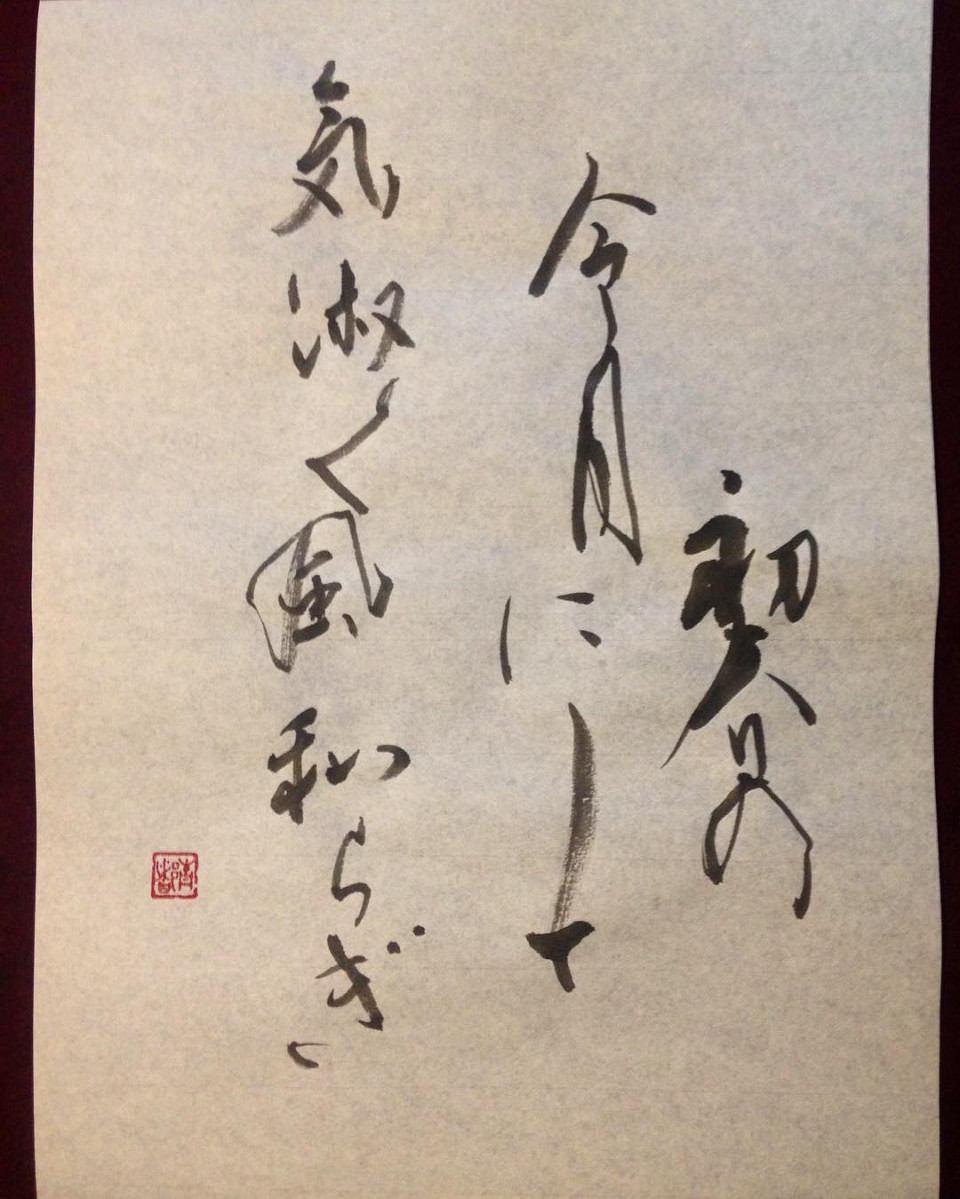 初春の
令月にして
気淑く風和らぎ、